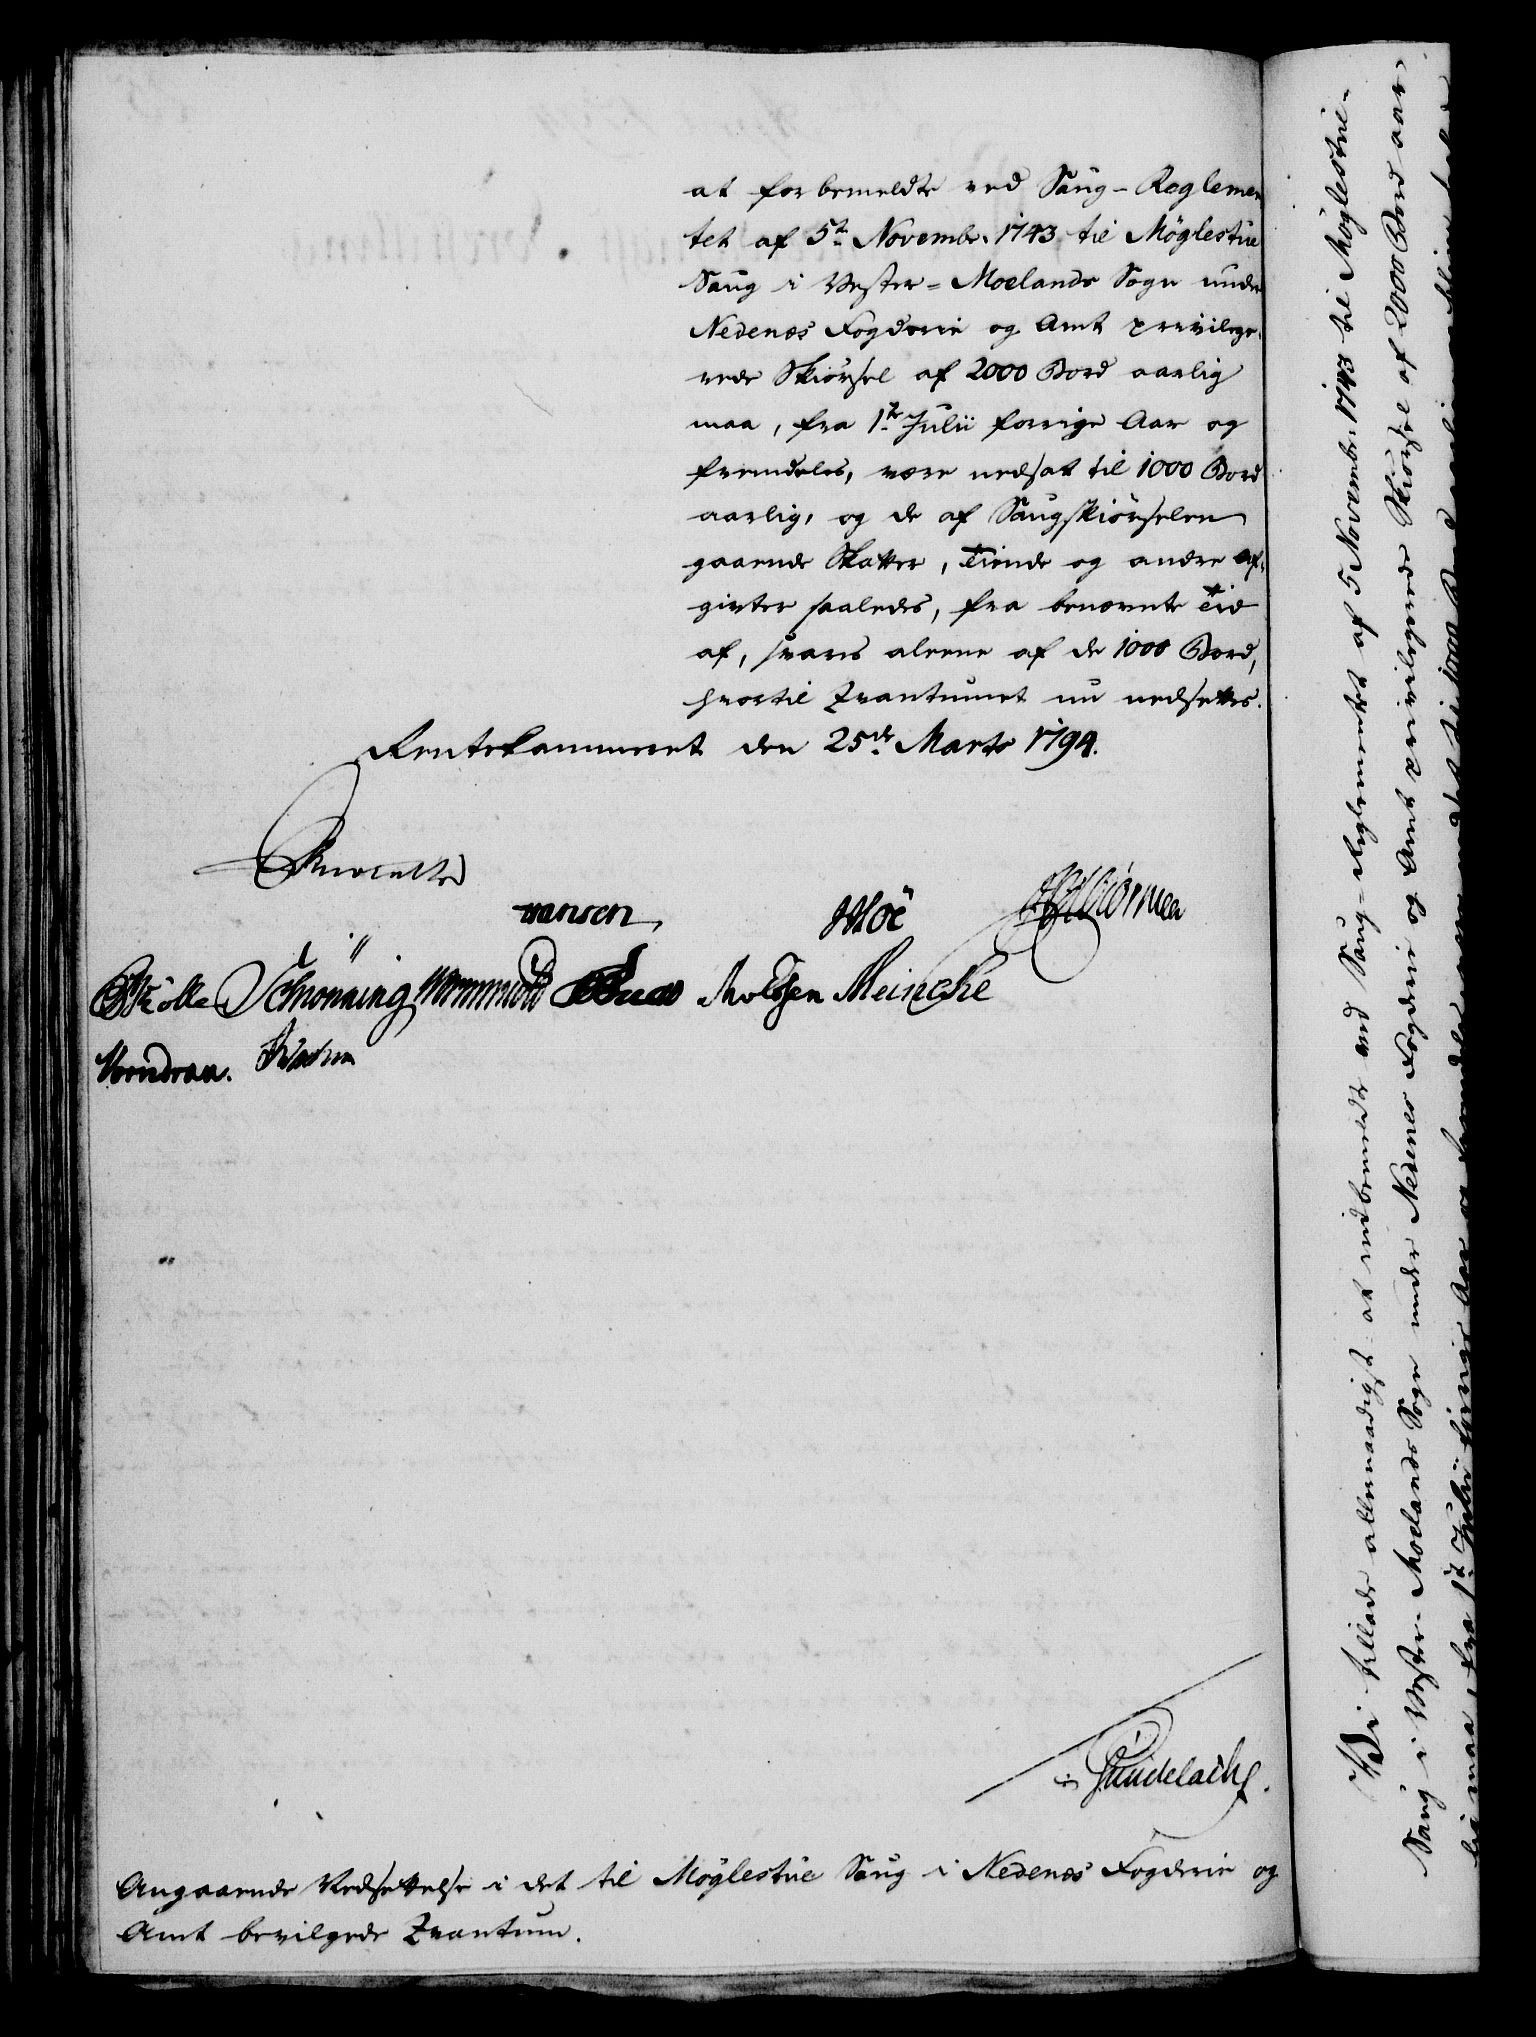 at forbemeldte ved Saug-Reglemen
tet af 5t. Novembr. 1743 til Møglestue
Saug i Vester-Moelands Sogn under
Nedenæs Fogderie og Amt privilege-
rede Skiørsel af 2000 Bord aarlig
maa, fra 1te Julii forrige Aar og
fremdeles, være nedsat til 1000 Bord
aarlig, og de af Saugskiørselen
gaaende Skatter, Tiende og andre Af-
givter saaledes, fra benævnte Tid
af, svares aleene af de 1000 Bord,
hvortil Qvantumet nu nedsættes.
Rentekammeret den 25de Marts 1794.
Hansen
Moe
Schønning Wormskiold Meincke
Angaaende Nedsættelse i det til Møglestue Saug i Nedenæs Fogderie og
Amt bevilgede Qvantum.
Vi tillade allernaadigst at indbemeldte ved Saug-Reglementet af 5 Novembr. 1743 til Møglestue-
Saug i Vester-Moelands Sogn under Nedenes Fogderie og Amt privilegerede Skiørsel af 2000 Bord aar-
lig maa, fra 1te Julii forrige Aar og fremdeles være nedsat til 1000 Bord